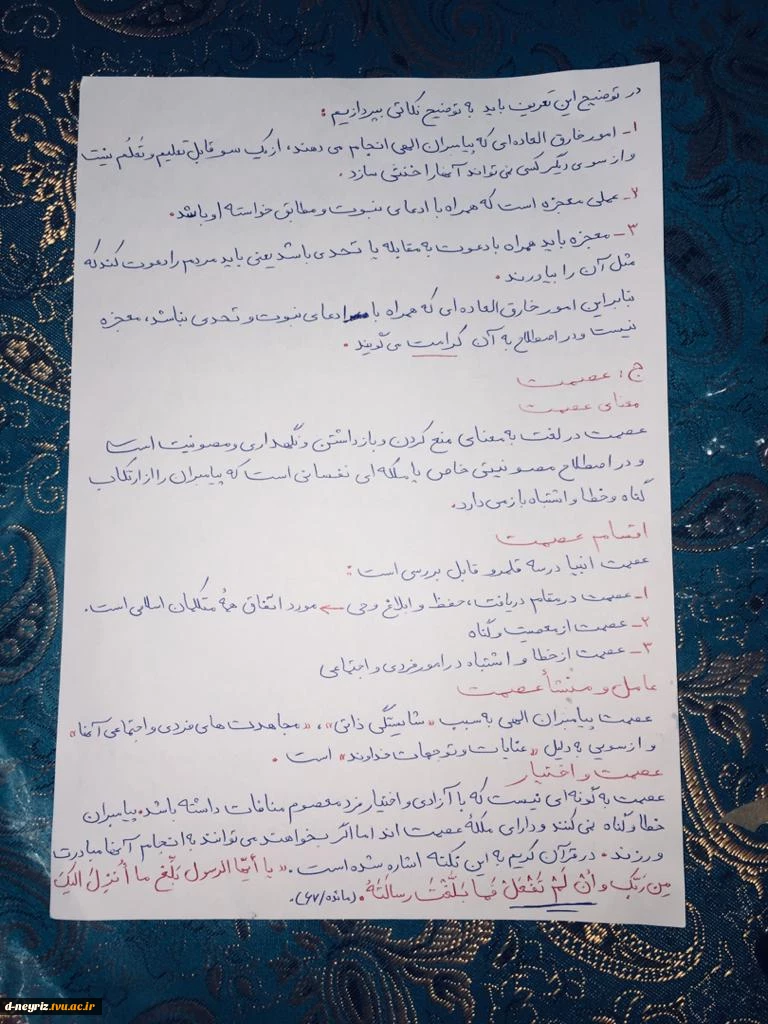 در توضیح این تعریف باید به توضیح نکاتی بپردازیم:
۱- امور خارق العاده‌ای که پیامبران الهی انجام می دهند، از یک سو قابل تعلیم و تعلُّم نیست
و از سوی دیگر کسی نمی تواند آنها را خنثی سازد.
۲- عملی معجزه است که همراه با ادعای نبوت و مطابق خواسته او باشد.
۳- معجزه باید همراه با دعوت به مقابله یا تحدی باشد یعنی باید مردم را دعوت کند که
مثل آن را بیاورند.
بنابراین امور خارق العاده‌ای که همراه با ادعای نبوت و تحدی نباشد، معجزه
نیست و در اصطلاح به آن کرامت می گویند.
ج: عصمت
معنای عصمت
عصمت در لغت به معنای منع کردن و بازداشتن و نگهداری و مصونیت است
و در اصطلاح مصونیتی خاص یا ملکه ای نفسانی است که پیامبران را از ارتکاب
گناه و خطا و اشتباه باز می دارد.
اقسام عصمت
عصمت انبیا در سه قلمرو قابل بررسی است:
۱- عصمت در مقام دریافت، حفظ و ابلاغ وحی ← مورد اتفاق همهٔ متکلمان اسلامی است.
۲- عصمت از معصیت و گناه
۳- عصمت از خطا و اشتباه در امور فردی و اجتماعی
عامل و منشأ عصمت
عصمت پیامبران الهی به سبب «شایستگی ذاتی»، «مجاهدت های فردی و اجتماعی آنها»
و از سویی به دلیل «عنایات و توجهات خداوند» است.
عصمت و اختیار
عصمت به گونه‌ای نیست که با آزادی و اختیار فرد معصوم منافات داشته باشد. پیامبران
خطا و گناه نمی کنند و دارای ملکهٔ عصمت اند اما اگر بخواهند می توانند به انجام آنها مبادرت
ورزند. در قرآن کریم به این نکته اشاره شده است. «یا أیّها الرسول بَلِّغ ما أُنزِلَ إلَیکَ
مِن رَبِّک و أنْ لَمْ تَفْعَلْ فَما بَلَّغْتَ رِسالَتَهُ. (مائده/۶۷).
d-neyriz.tvu.ac.ir